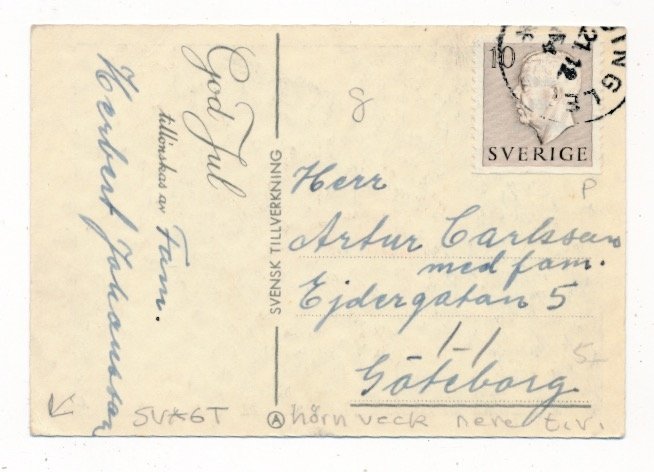 God Jul
tillönskas av Fam.
Herbert Johansson
SVENSK TILLVERKNING
10
SVERIGE
21.12
8
Herr
Artur Carlsson
med fam.
Ejdergatan 5
1-1
Göteborg
P
5-
SVAGT
A hörn veck nere t.v.